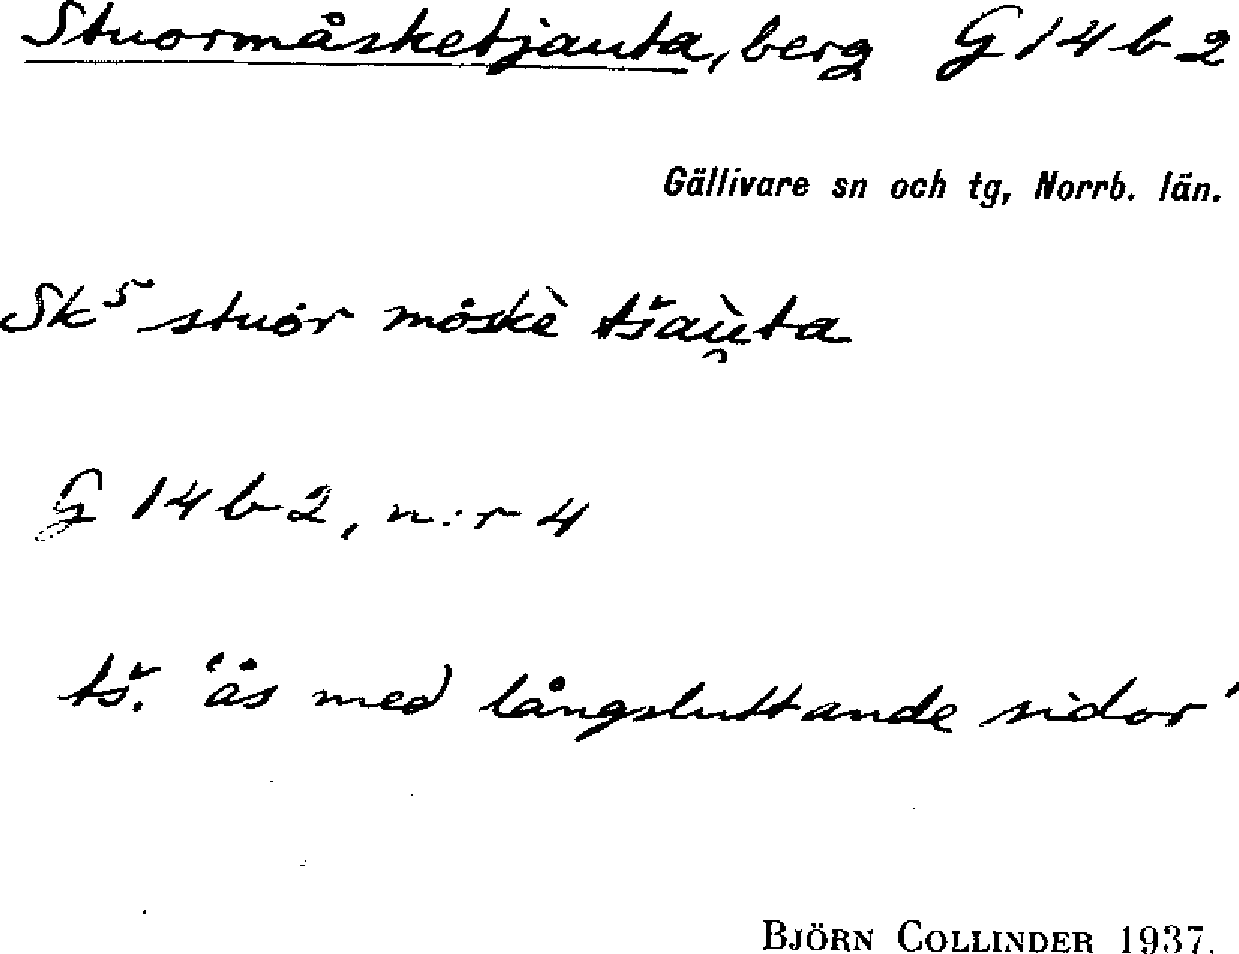 Stuormåsketjauta, berg G 14 b 2
Gällivare sn och tg, Norrb. län.
Sk⁵ stuòr måskè tšaụ̀ta
G 14 b 2, n:r 4
tš. 'ås med långsluttande sidor'
BJÖRN COLLINDER 1937.